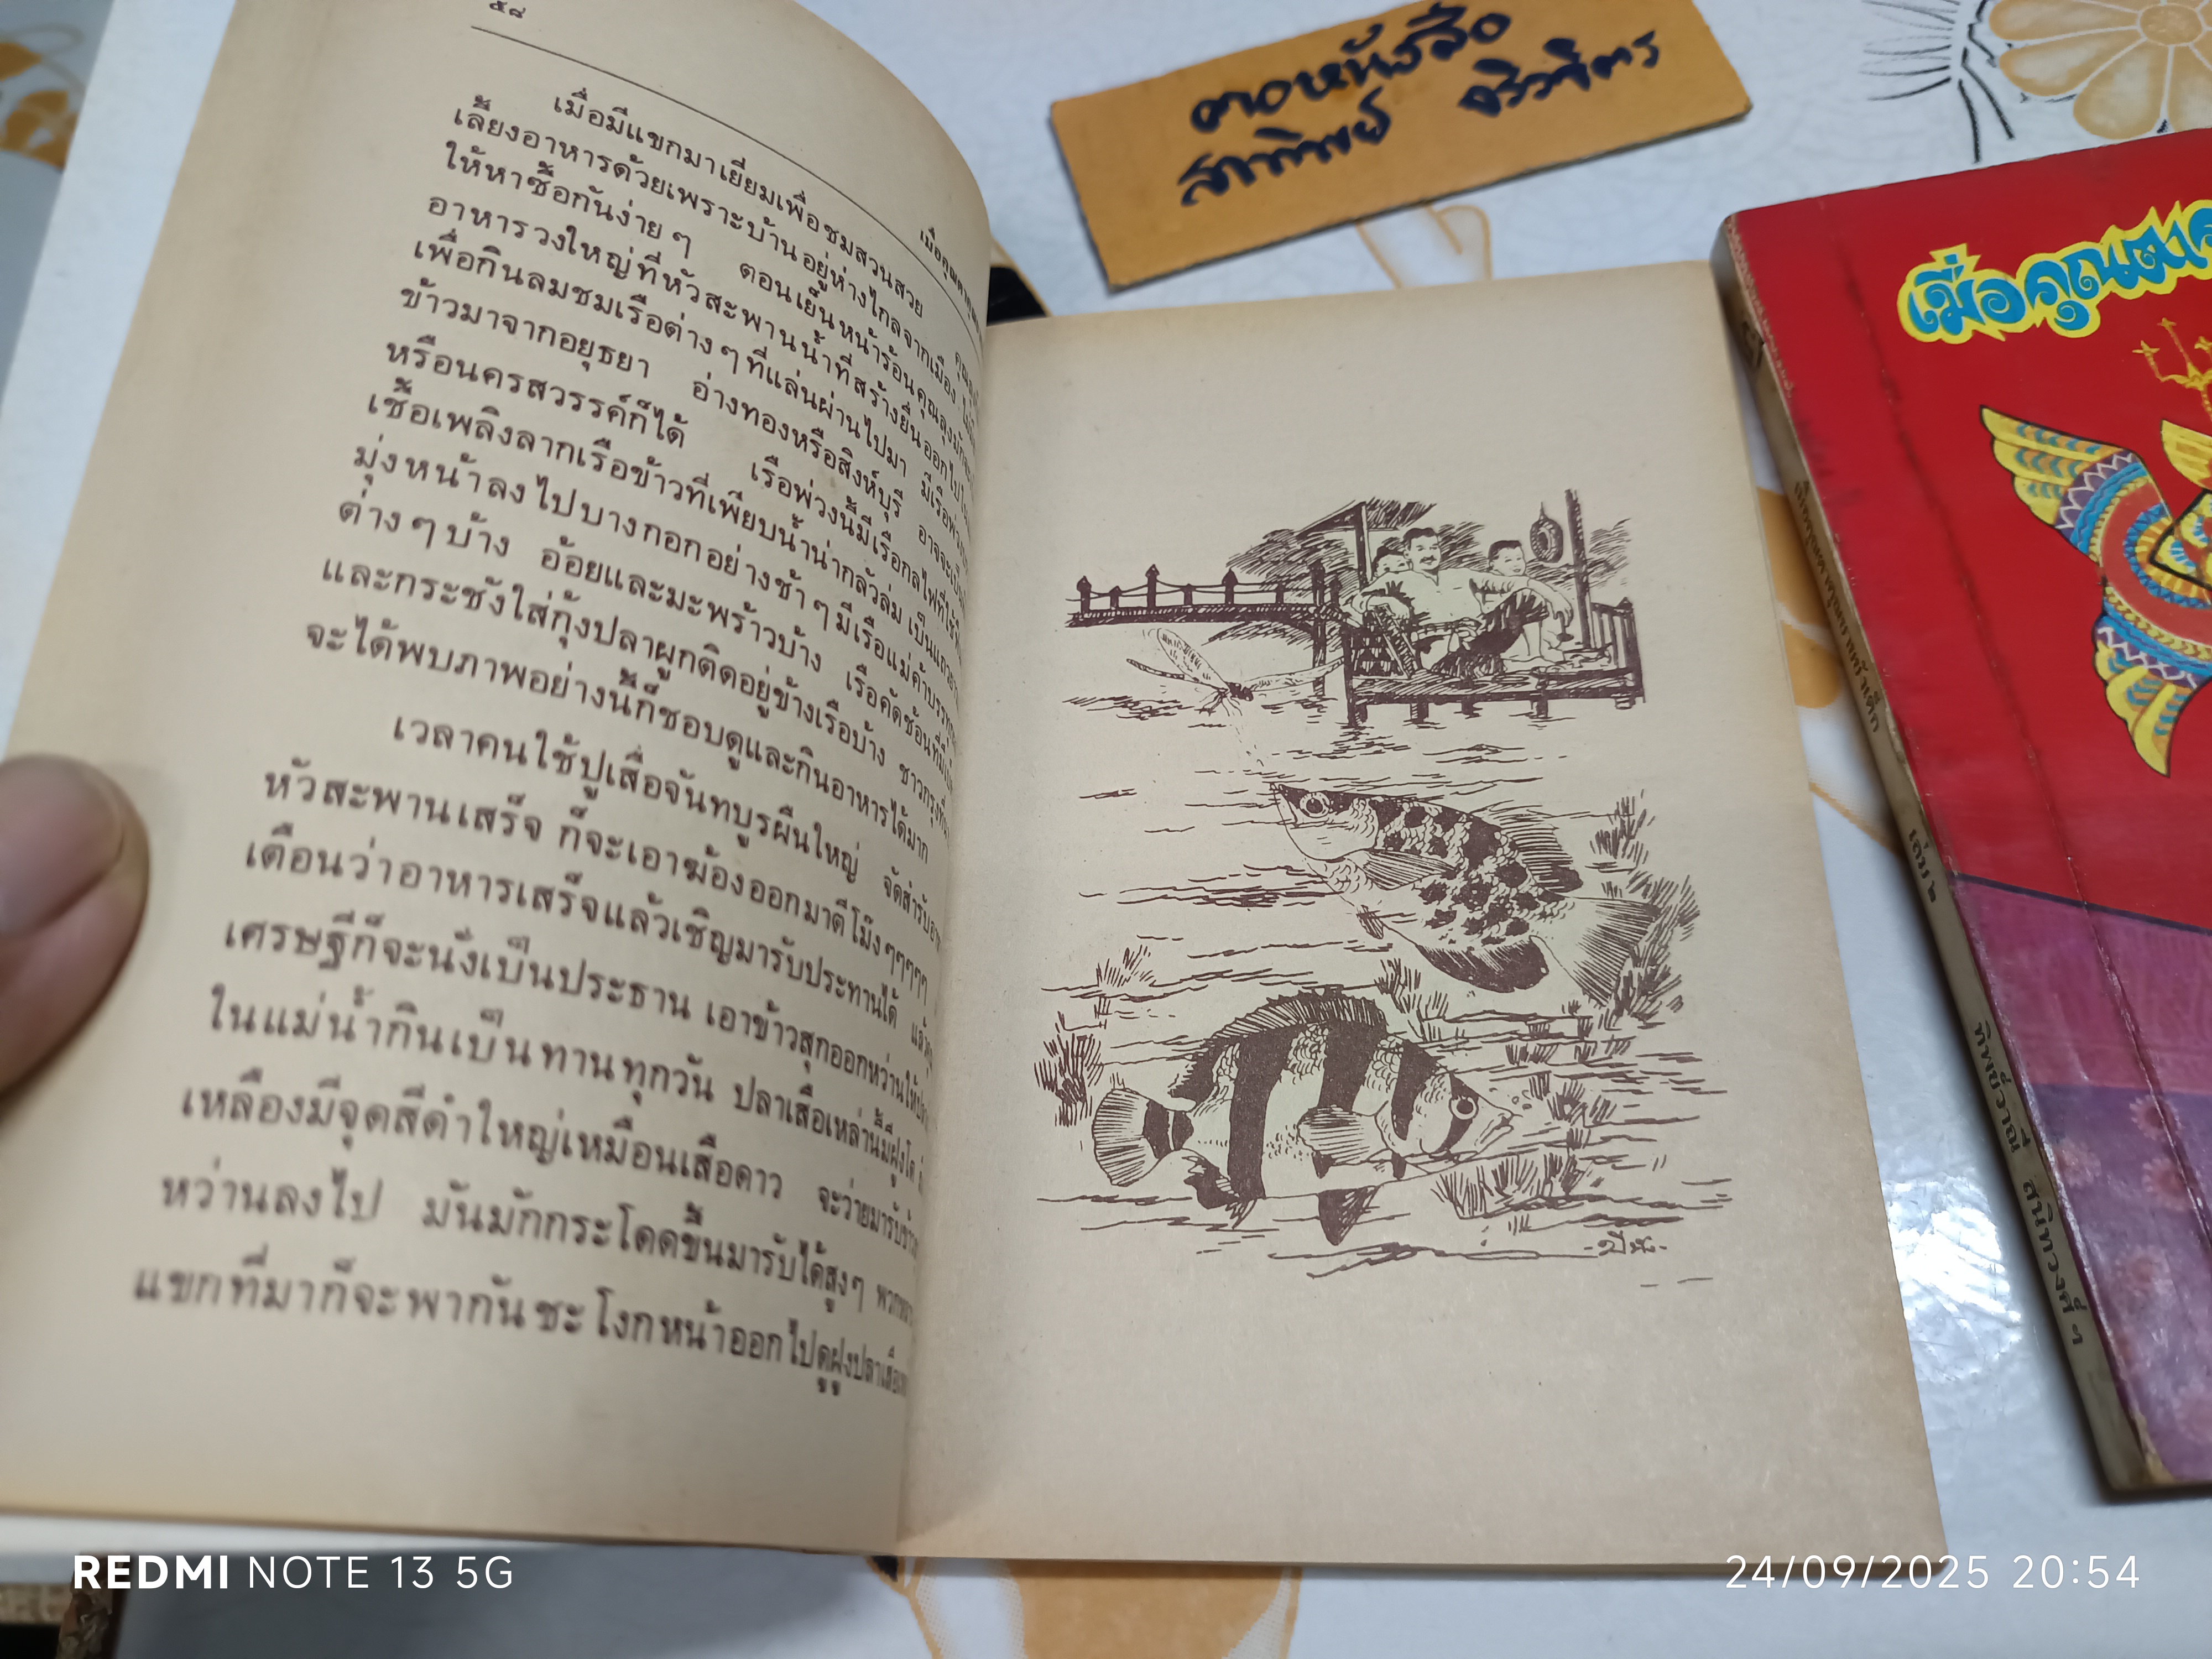 ๕๘
เมื่อมีแขกมาเยี่ยมเพื่อชมสวนสวย
เลี้ยงอาหารด้วยเพราะบ้านอยู่ห่างไกลจากเมือง
ให้หาซื้อกันง่าย ๆ ตอนเย็นหน้าร้อนคุณลุงมักจะ
อาหารวงใหญ่ที่หัวสะพานน้ำที่สร้างยื่นออกไป
เพื่อกินลมชมเรือต่าง ๆ ที่แล่นผ่านไปมา มีเรือพ่วง
ข้าวมาจากอยุธยา อ่างทองหรือสิงห์บุรี อาจจะเป็น
หรือนครสวรรค์ก็ได้ เรือพ่วงนี้มีเรือกลไฟที่ใช้
เชื้อเพลิงลากเรือข้าวที่เพียบน้ำน่ากลัวล่ม เป็นแถว
มุ่งหน้าลงไปบางกอกอย่างช้า ๆ มีเรือแม่ค้าบรรทุก
ต่าง ๆ บ้าง อ้อยและมะพร้าวบ้าง เรือคัดช้อนที่มี
และกระชังใส่กุ้งปลาผูกติดอยู่ข้างเรือบ้าง ชาวกรุงที่
จะได้พบภาพอย่างนี้ก็ชอบดูและกินอาหารได้มาก
เวลาคนใช้ปูเสื่อจันทบูรผืนใหญ่ จัดสำรับ
หัวสะพานเสร็จ ก็จะเอาฆ้องออกมาตีโม๊งๆๆๆๆๆ
เตือนว่าอาหารเสร็จแล้วเชิญมารับประทานได้
เศรษฐีก็จะนั่งเป็นประธาน เอาข้าวสุกออกหว่านให้
ในแม่น้ำกินเป็นทานทุกวัน ปลาเสือเหล่านี้มีฝูงโต
เหลืองมีจุดสีดำใหญ่เหมือนเสือดาว จะว่ายมารับ
หว่านลงไป มันมักกระโดดขึ้นมารับได้สูงๆ
แขกที่มาก็จะพากันชะโงกหน้าออกไปดูฝูงปลาเสือ
ตอหนังสือ
สาทิพย์
เมื่อคุณตา
เมื่อคุณตาคุณยายยังเด็ก เล่ม ๒ ทิพย์วาณี สนิทวงศ์ ฯ
REDMI NOTE 13 5G
24/09/2025 20:54